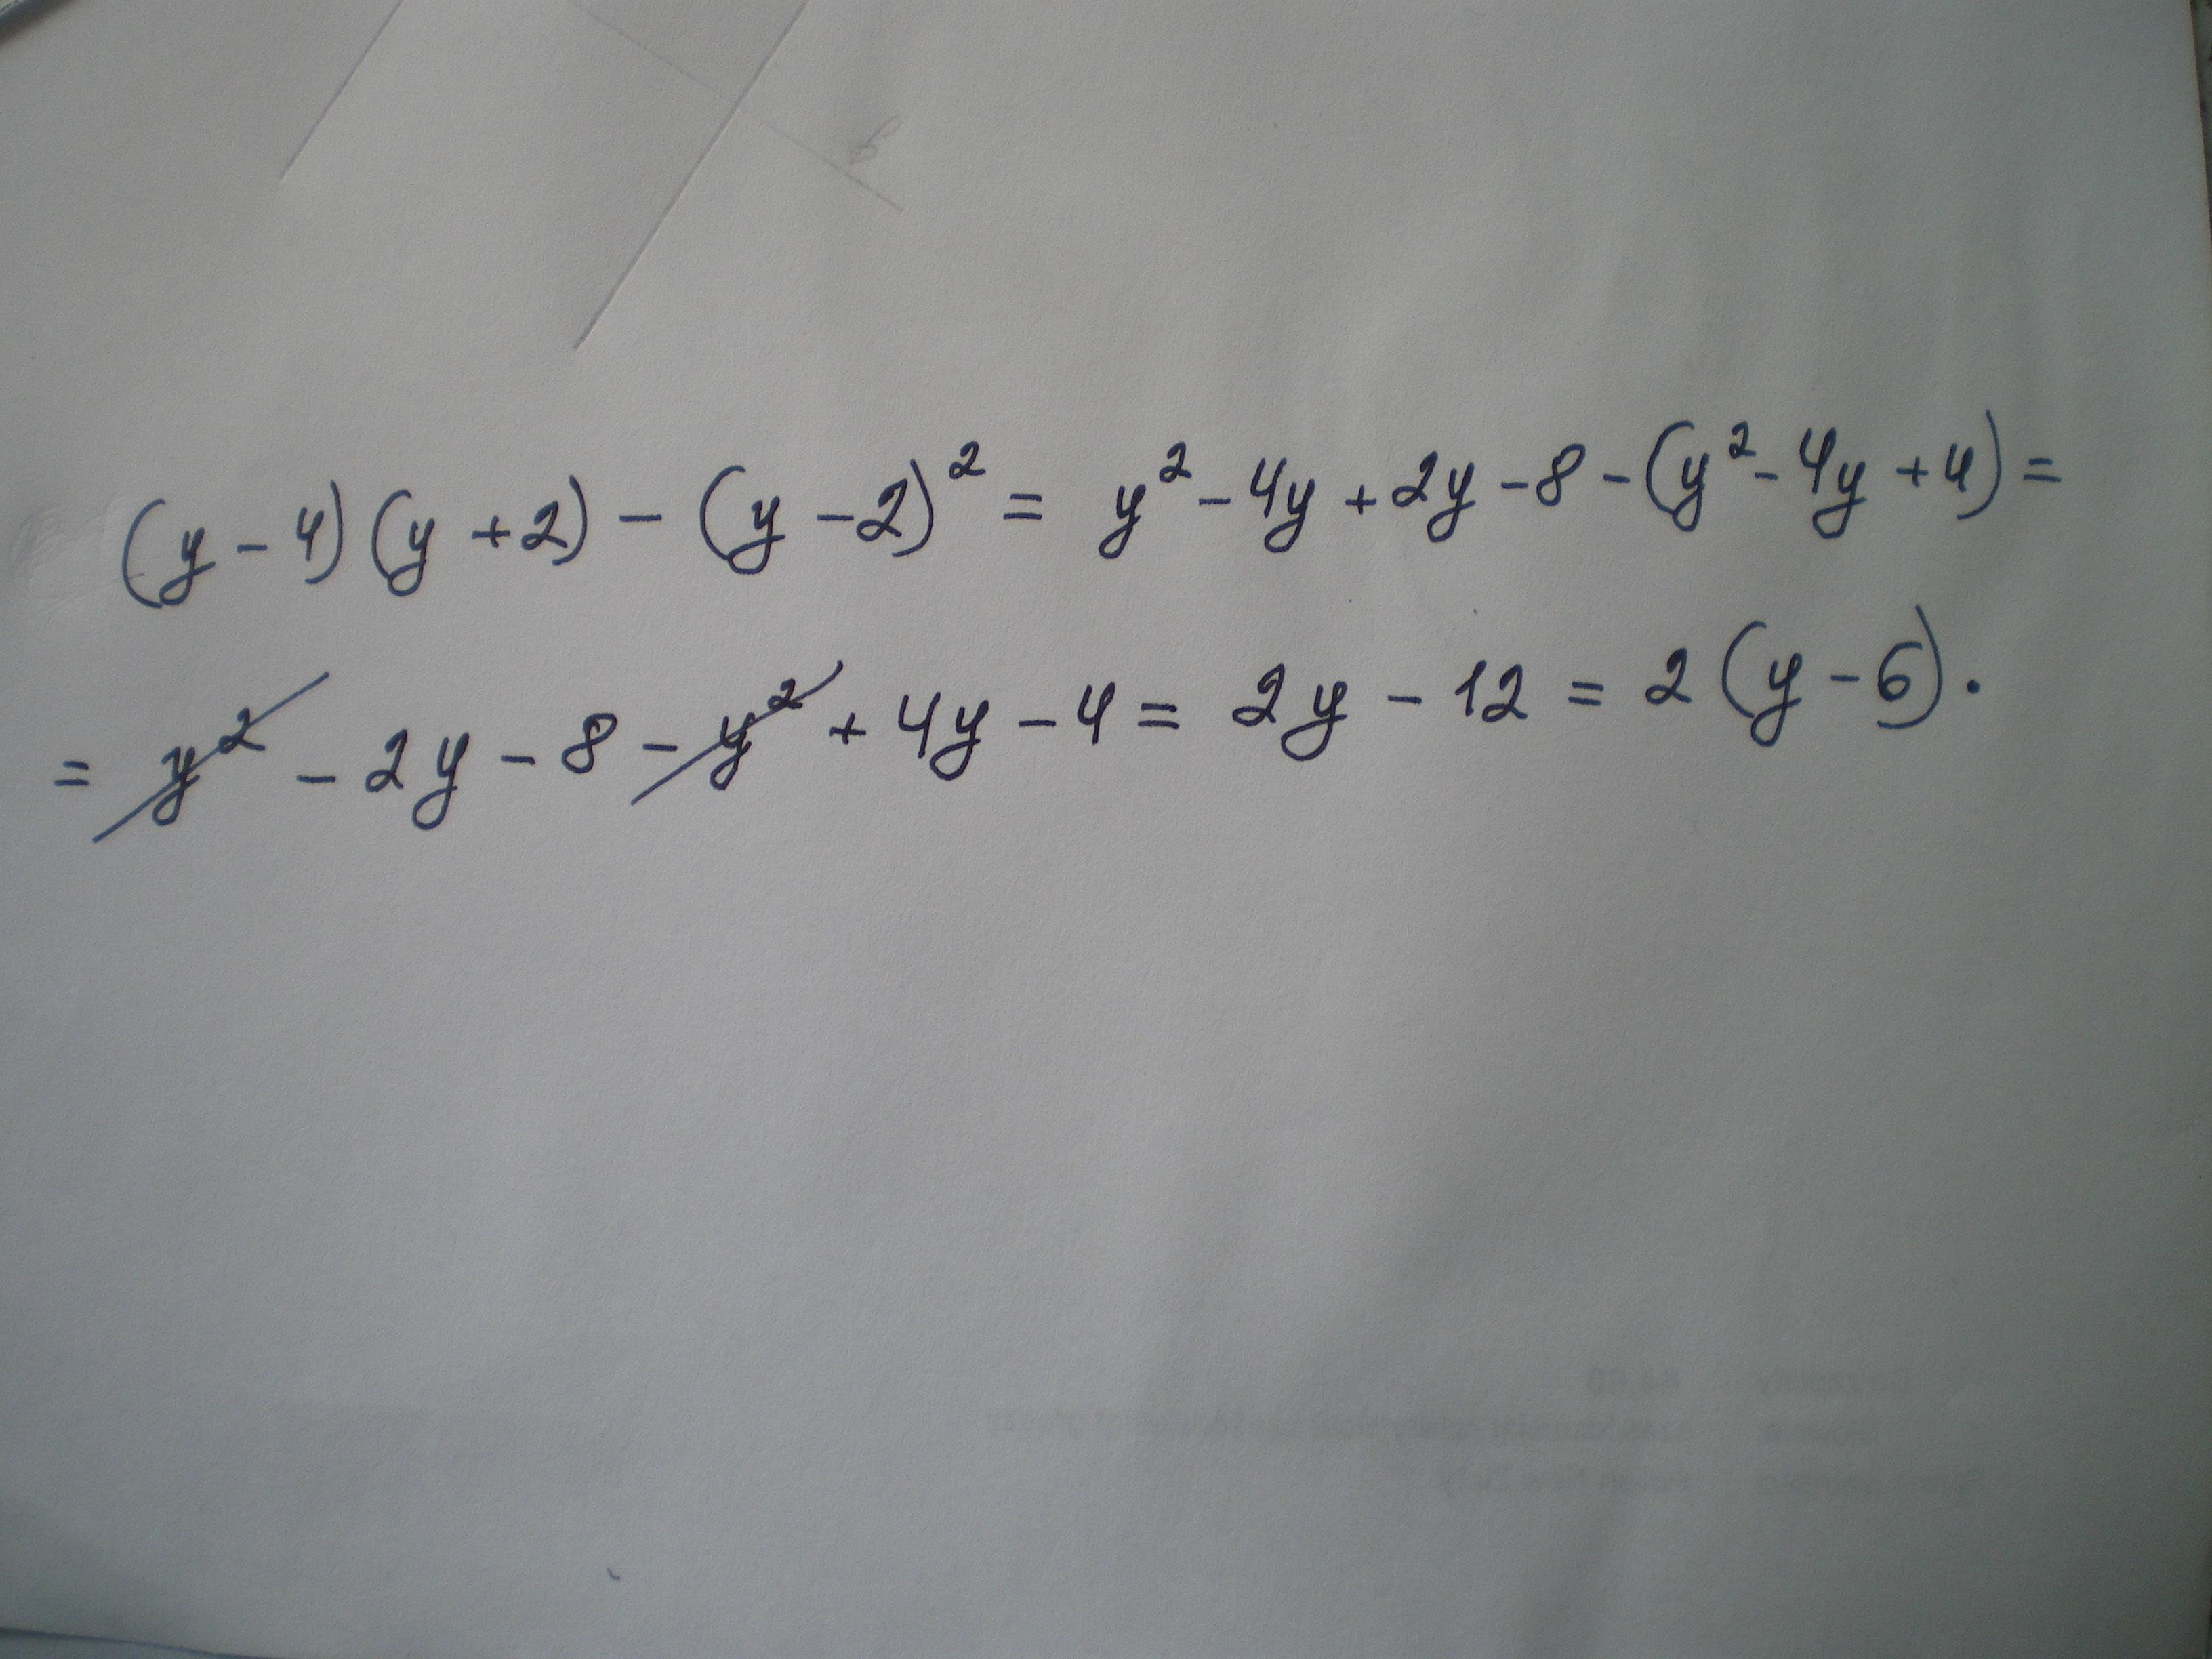 (y - 4)(y + 2) - (y - 2)² = y² - 4y + 2y - 8 - (y² - 4y + 4) =
= y² - 2y - 8 - y² + 4y - 4 = 2y - 12 = 2(y - 6).